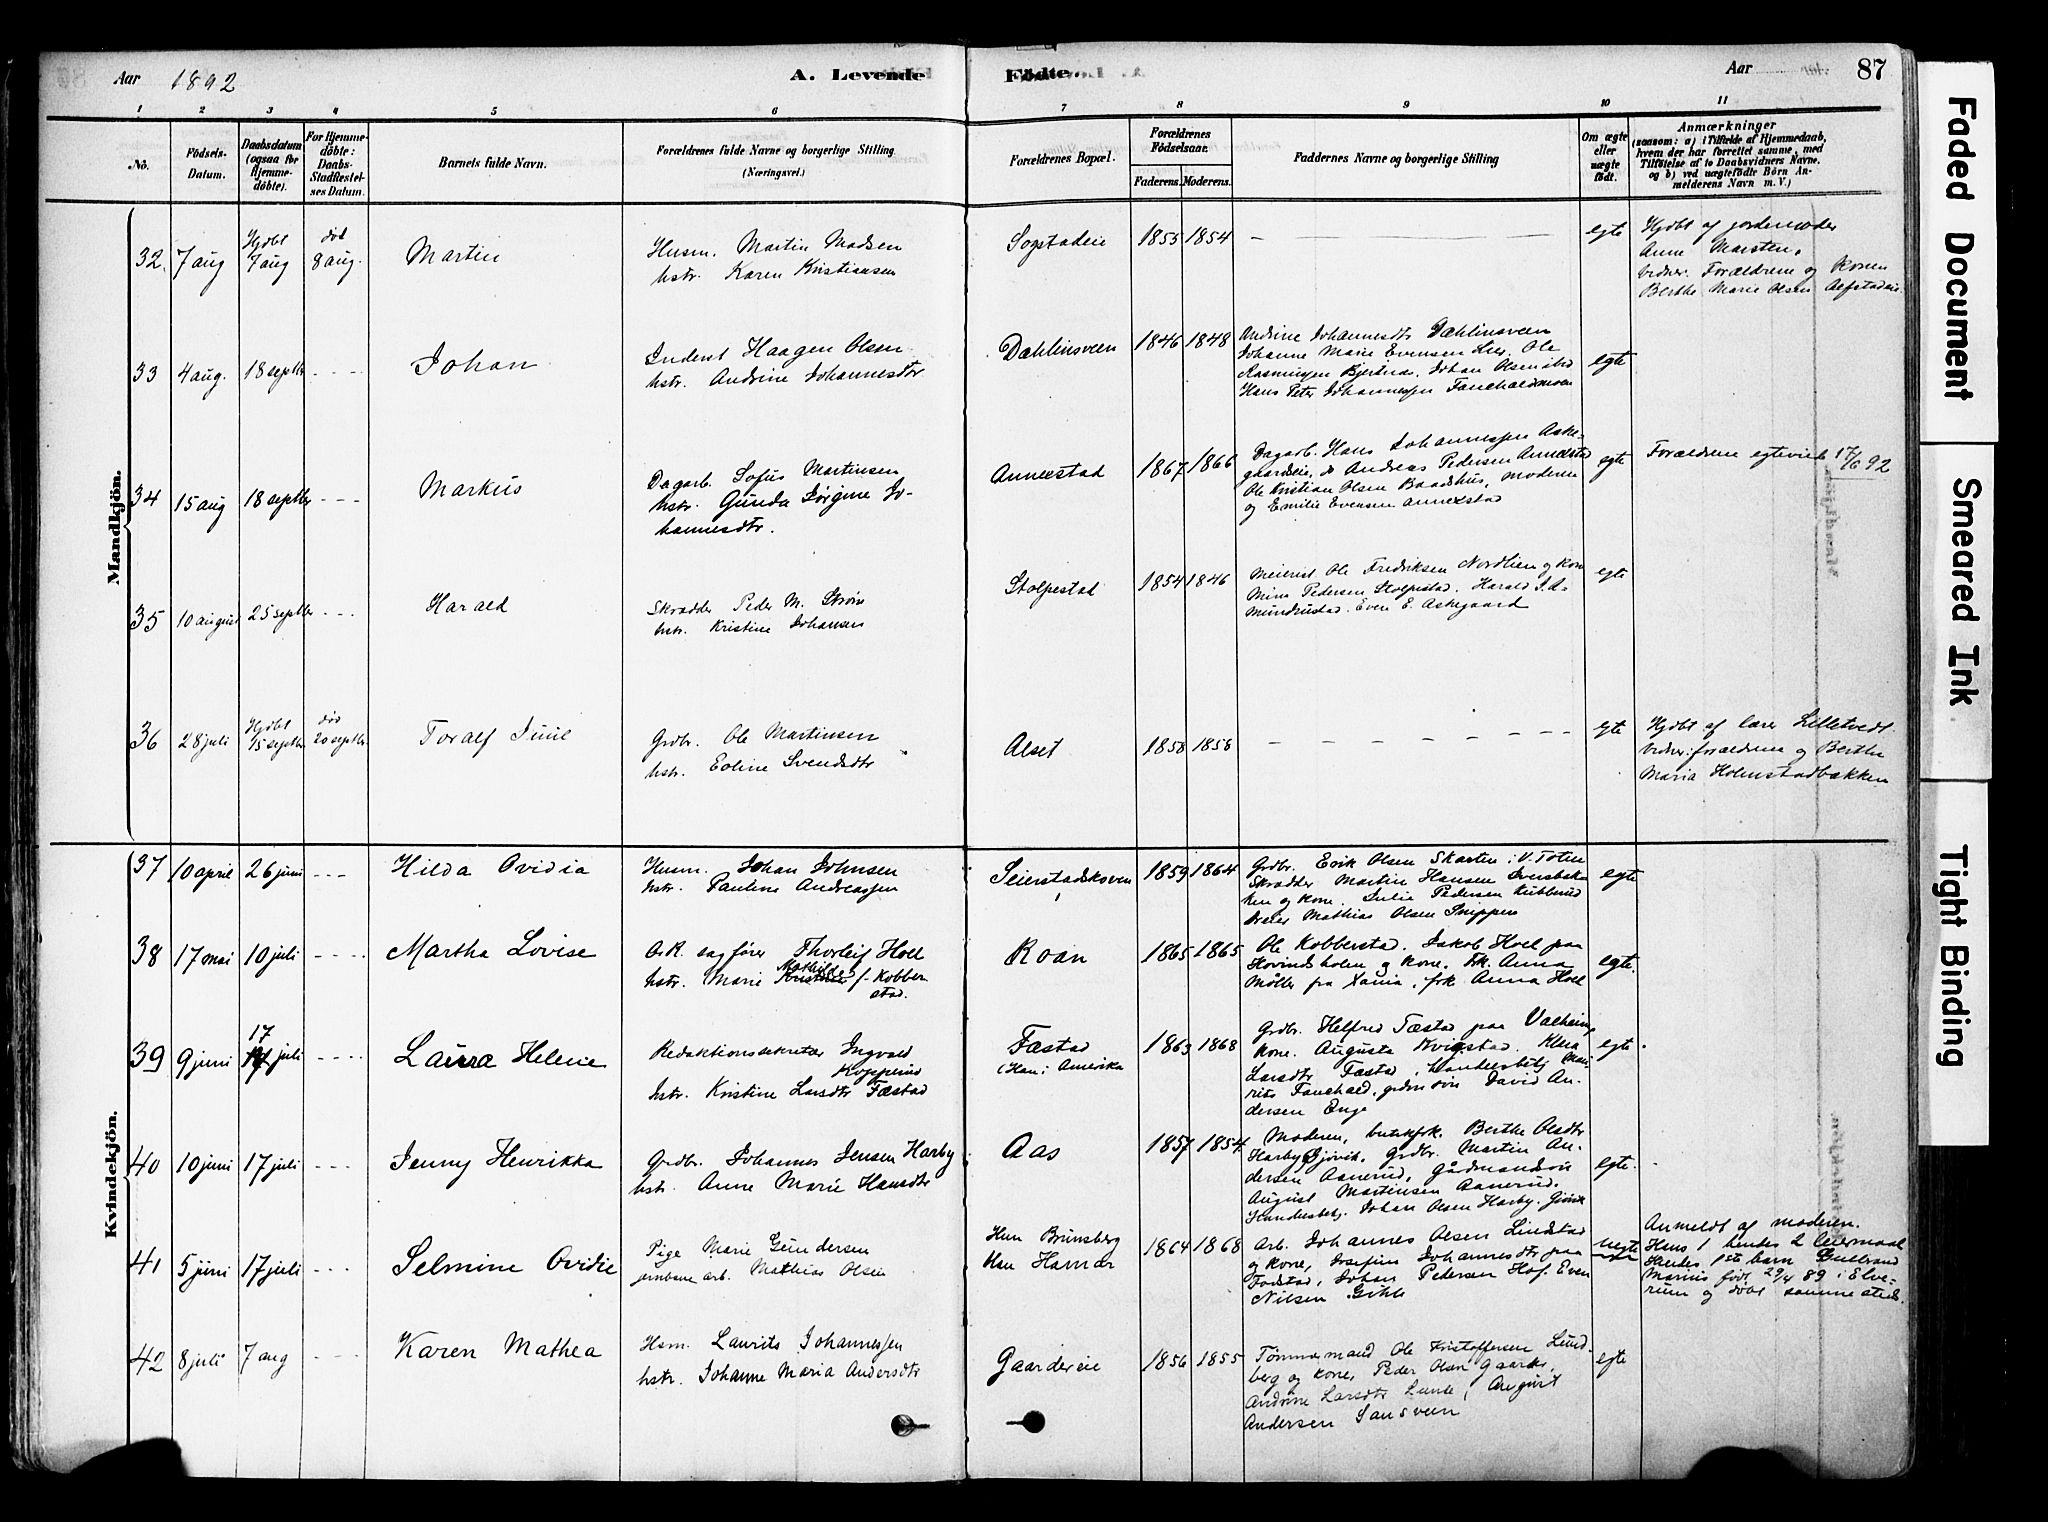 Aar 1892
A. Levende
Födte.
Aar
87
1 2 3 4 5 6 7 8 9 10 11
No.
Födsels-Datum.
Daabsdatum (ogsaa for Hjemmedöbte).
For Hjemmedöbte: Daabs-Stadfæstelses Datum.
Barnets fulde Navn.
Forældrenes fulde Navne og borgerlige Stilling (Næringsvei.)
Forældrenes Bopæl.
Forældrenes Födselsaar.
Faderens. Moderens.
Faddernes Navne og borgerlige Stilling
Om ægte eller uægte födt.
Anmærkninger
(saasom: a) i Tilfælde af Hjemmedaab, hvem der har forrettet samme, med Tilføielse af to Daabsvidners Navne. og b) ved uægtefödte Börn Anmelderens Navn m. V.)
Mandkjön.
32. 7 aug Hjdbt 7 aug död 8 aug. Martin
Husm. Martin Madsen
hstr. Karen Kristiansen
Sogstadeie 1855 1854 egte
Hjdbt af jordemoder
Anne Marsten.
vidner. Forældrene og Konen
Berthe Marie Olsen
33 4 aug. 18 septbr Johan
Inderst Haagen Olsen
hstr. Andrine Johannesdtr
Dæhlinsveen 1846 1848
Andrine Johannesdtr Dæhlinsveen
Johanne Marie Evensen Lier. Ole
Rasmussen Bjertnæs. Johan Olsen ibid
Hans Peter Johannessen
egte
34 15 aug 18 septbr Markus
Dagarb. Sofus Martinsen
hstr. Gunda Jörgine Johannesdtr.
Annexstad 1867 1866
Dagarb. Hans Johannessen Askegaardseie, do Andreas Pedersen Annexstad
Ole Kristian Olsen Baadshus, moderen
og Emilie Evensen Annexstad
egte
Forældrene egteviet 17/6 92
35 10 august 25 septbr Harald
Skrædder Peder M. Ström
hstr. Kristine Johansen
Stolpestad 1854 1846
Meierist Ole Fredriksen Nordlien og kone
Mina Pedersen Stolpestad. Harald
Mundrustad. Even E. Askegaard
egte
36 28 juli Hjdbt 15 septbr död 20 septbr Toralf Juul
Grdbr. Ole Martinsen
hstr. Eoline Svendsdtr
Alset 1858 1858 egte
Hjdbt af lærer Lilletvedt.
vidner: forældrene og Berthe
Maria Holmstadbakken
Kvindekjön.
37 10 april 26 juni Hilda Ovidia
Husm. Johan Johnsen
hstr. Pauline Andreassen
Seierstadskoven 1859 1864
Grdbr. Erik Olsen Skarten i V. Toten
Skrædder Martin Hansen
og kone. Julie Pedersen Kubberud
Mathias Olsen Snippen
egte
38 17 mai 10 juli Martha Lovise
O.R. sagförer Thorleif Hoel
hstr. Marie Mathilde f. Kobberstad.
Roan 1865 1865
Ole Kobberstad. Jakob Hoel paa
Hovindsholm og kone. Frk. Anna
Möller fra Xania, frk Anna Hoel
egte.
39 9 juni 17 juli Laura Helene
Redaktionssekretær Ingvald
Kopperud
hstr. Kristine Larsdtr Fæstad
Fæstad
(Han i Amerika 1863 1868
Grdbr. Helfred Fæstad paa Valheim
kone. Augusta Kvigstad. Klara
Larsdtr Fæstad, handelsbetj
grdmsön David Andersen Enge
egte
40 10 juni 17 juli Jenny Henrikka
Grdbr. Johannes Jensen Harby
hstr. Anne Marie Hansdtr
Aas 1857 1854
Moderen, butikfrk. Berthe Olsdtr
Harby Gjövik. Grdbr. Martin Andersen Aanerud, Gårdmandsön
August Martinsen Aanerud.
Handelsbetj. Johan Olsen Harby, Gjövik
egte.
41 5 juni 17 juli Selmine Ovidie
Pige Marie Gundersen
jernbane arb. Mathias Olsen
Hun Brunsberg
Han Hamar 1864 1868
Arb. Johannes Olsen Lindstad
og kone, Josefine Johannesdtr paa
Fodstad, Johan Pedersen Hof. Even
Nilsen Gihle
uegte
Anmeldt af moderen.
Hans 1 hendes 2 leiermaal
Hendes 1ste barn Gulbrand
Marius födt 29/4 89 i Elverum og döbt samme steds.
42 8 juli 7 aug Karen Mathea
Hsm. Laurits Johannessen
hstr. Johanne Maria Andersdtr
Gaardereie 1856 1855
Tömmermand Ole Kristoffersen Lundberg og kone, Peder Olsen Gaarder,
Andrine Larsdtr Lunde, August
Andersen Sansveen
egte
Faded Document
Smeared Ink
Tight Binding